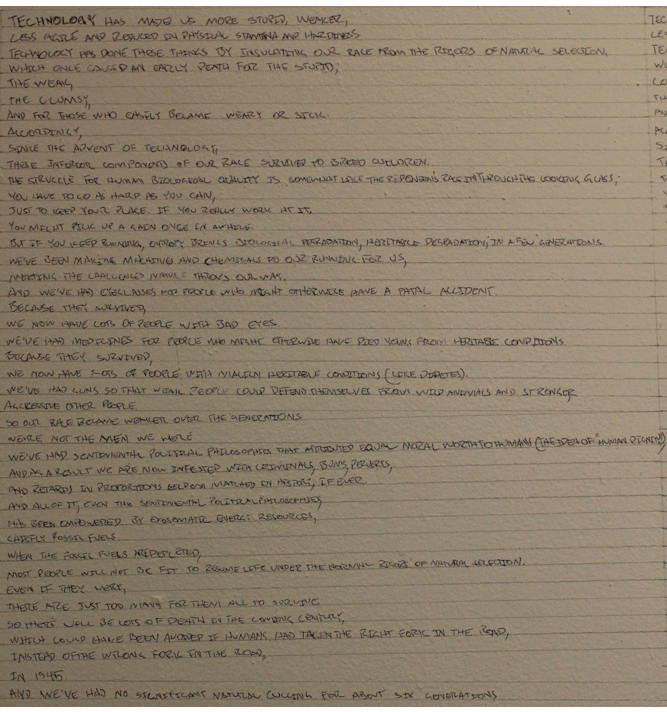 TECHNOLOGY HAS MADE US MORE STUPID, WEAKER,
LESS AGILE AND REDUCED IN PHYSICAL STAMINA AND HARDINESS.
TECHNOLOGY HAS DONE THESE THINGS BY INSULATING OUR RACE FROM THE RIGORS OF NATURAL SELECTION,
WHICH ONCE CAUSED AN EARLY DEATH FOR THE STUPID,
THE WEAK,
THE CLUMSY,
AND FOR THOSE WHO EASILY BECAME WEARY OR SICK.
SINCE THE ADVENT OF TECHNOLOGY,
THESE INFERIOR COMPONENTS OF OUR RACE SURVIVED TO BREED CHILDREN.
THE STRUGGLE FOR HUMAN BIOLOGICAL QUALITY IS SOMEWHAT LIKE THE RACE IN THROUGH THE LOOKING GLASS;
YOU HAVE TO GO AS HARD AS YOU CAN,
JUST TO KEEP YOUR PLACE. IF YOU REALLY WORK AT IT,
YOU MIGHT PICK UP A GAIN ONCE IN AWHILE.
BUT IF YOU KEEP RUNNING, BRINGS BIOLOGICAL DEGRADATION, HERITABLE DEGRADATION, IN A FEW GENERATIONS.
WE'VE BEEN MAKING MACHINES AND CHEMICALS DO OUR RUNNING FOR US,
MEETING THE CHALLENGES NATURE THROWS OUR WAY.
AND WE'VE HAD EYEGLASSES FOR PEOPLE WHO MIGHT OTHERWISE HAVE A FATAL ACCIDENT.
BECAUSE THEY SURVIVED,
WE NOW HAVE LOTS OF PEOPLE WITH BAD EYES.
WE'VE HAD MEDICINES FOR PEOPLE WHO MIGHT OTHERWISE HAVE DIED YOUNG FROM HERITABLE CONDITIONS.
BECAUSE THEY SURVIVED,
WE NOW HAVE LOTS OF PEOPLE WITH HERITABLE CONDITIONS (LIKE DIABETES).
WE'VE HAD GUNS SO THAT WEAK PEOPLE COULD DEFEND THEMSELVES FROM WILD ANIMALS AND STRONGER
AGGRESSIVE OTHER PEOPLE.
SO OUR RACE BECAME WEAKER OVER THE GENERATIONS
WE'RE NOT THE MEN WE WERE
WE'VE HAD SENTIMENTAL POLITICAL PHILOSOPHIES THAT ATTRIBUTED EQUAL MORAL WORTH TO HUMANS (THE IDEA OF "HUMAN DIGNITY")
AND AS A RESULT WE ARE NOW INFESTED WITH CRIMINALS, BUMS, PERVERTS,
AND RETARDS IN PROPORTIONS SELDOM MATCHED IN HISTORY, IF EVER.
AND ALL OF IT, EVEN THE SENTIMENTAL POLITICAL PHILOSOPHIES,
HAS BEEN EMPOWERED BY EXOSOMATIC ENERGY RESOURCES,
CHIEFLY FOSSIL FUELS.
WHEN THE FOSSIL FUELS ARE DEPLETED,
MOST PEOPLE WILL NOT BE FIT TO RESUME LIFE UNDER THE NORMAL RIGOR OF NATURAL SELECTION.
EVEN IF THEY WERE,
THERE ARE JUST TOO MANY FOR THEM ALL TO SURVIVE
SO THERE WILL BE LOTS OF DEATH IN THE COMING CENTURY,
WHICH COULD HAVE BEEN AVOIDED IF HUMANS HAD TAKEN THE RIGHT FORK IN THE ROAD,
INSTEAD OF THE WRONG FORK IN THE ROAD,
IN 1945
AND WE'VE HAD NO SIGNIFICANT NATURAL CULLING FOR ABOUT SIX GENERATIONS